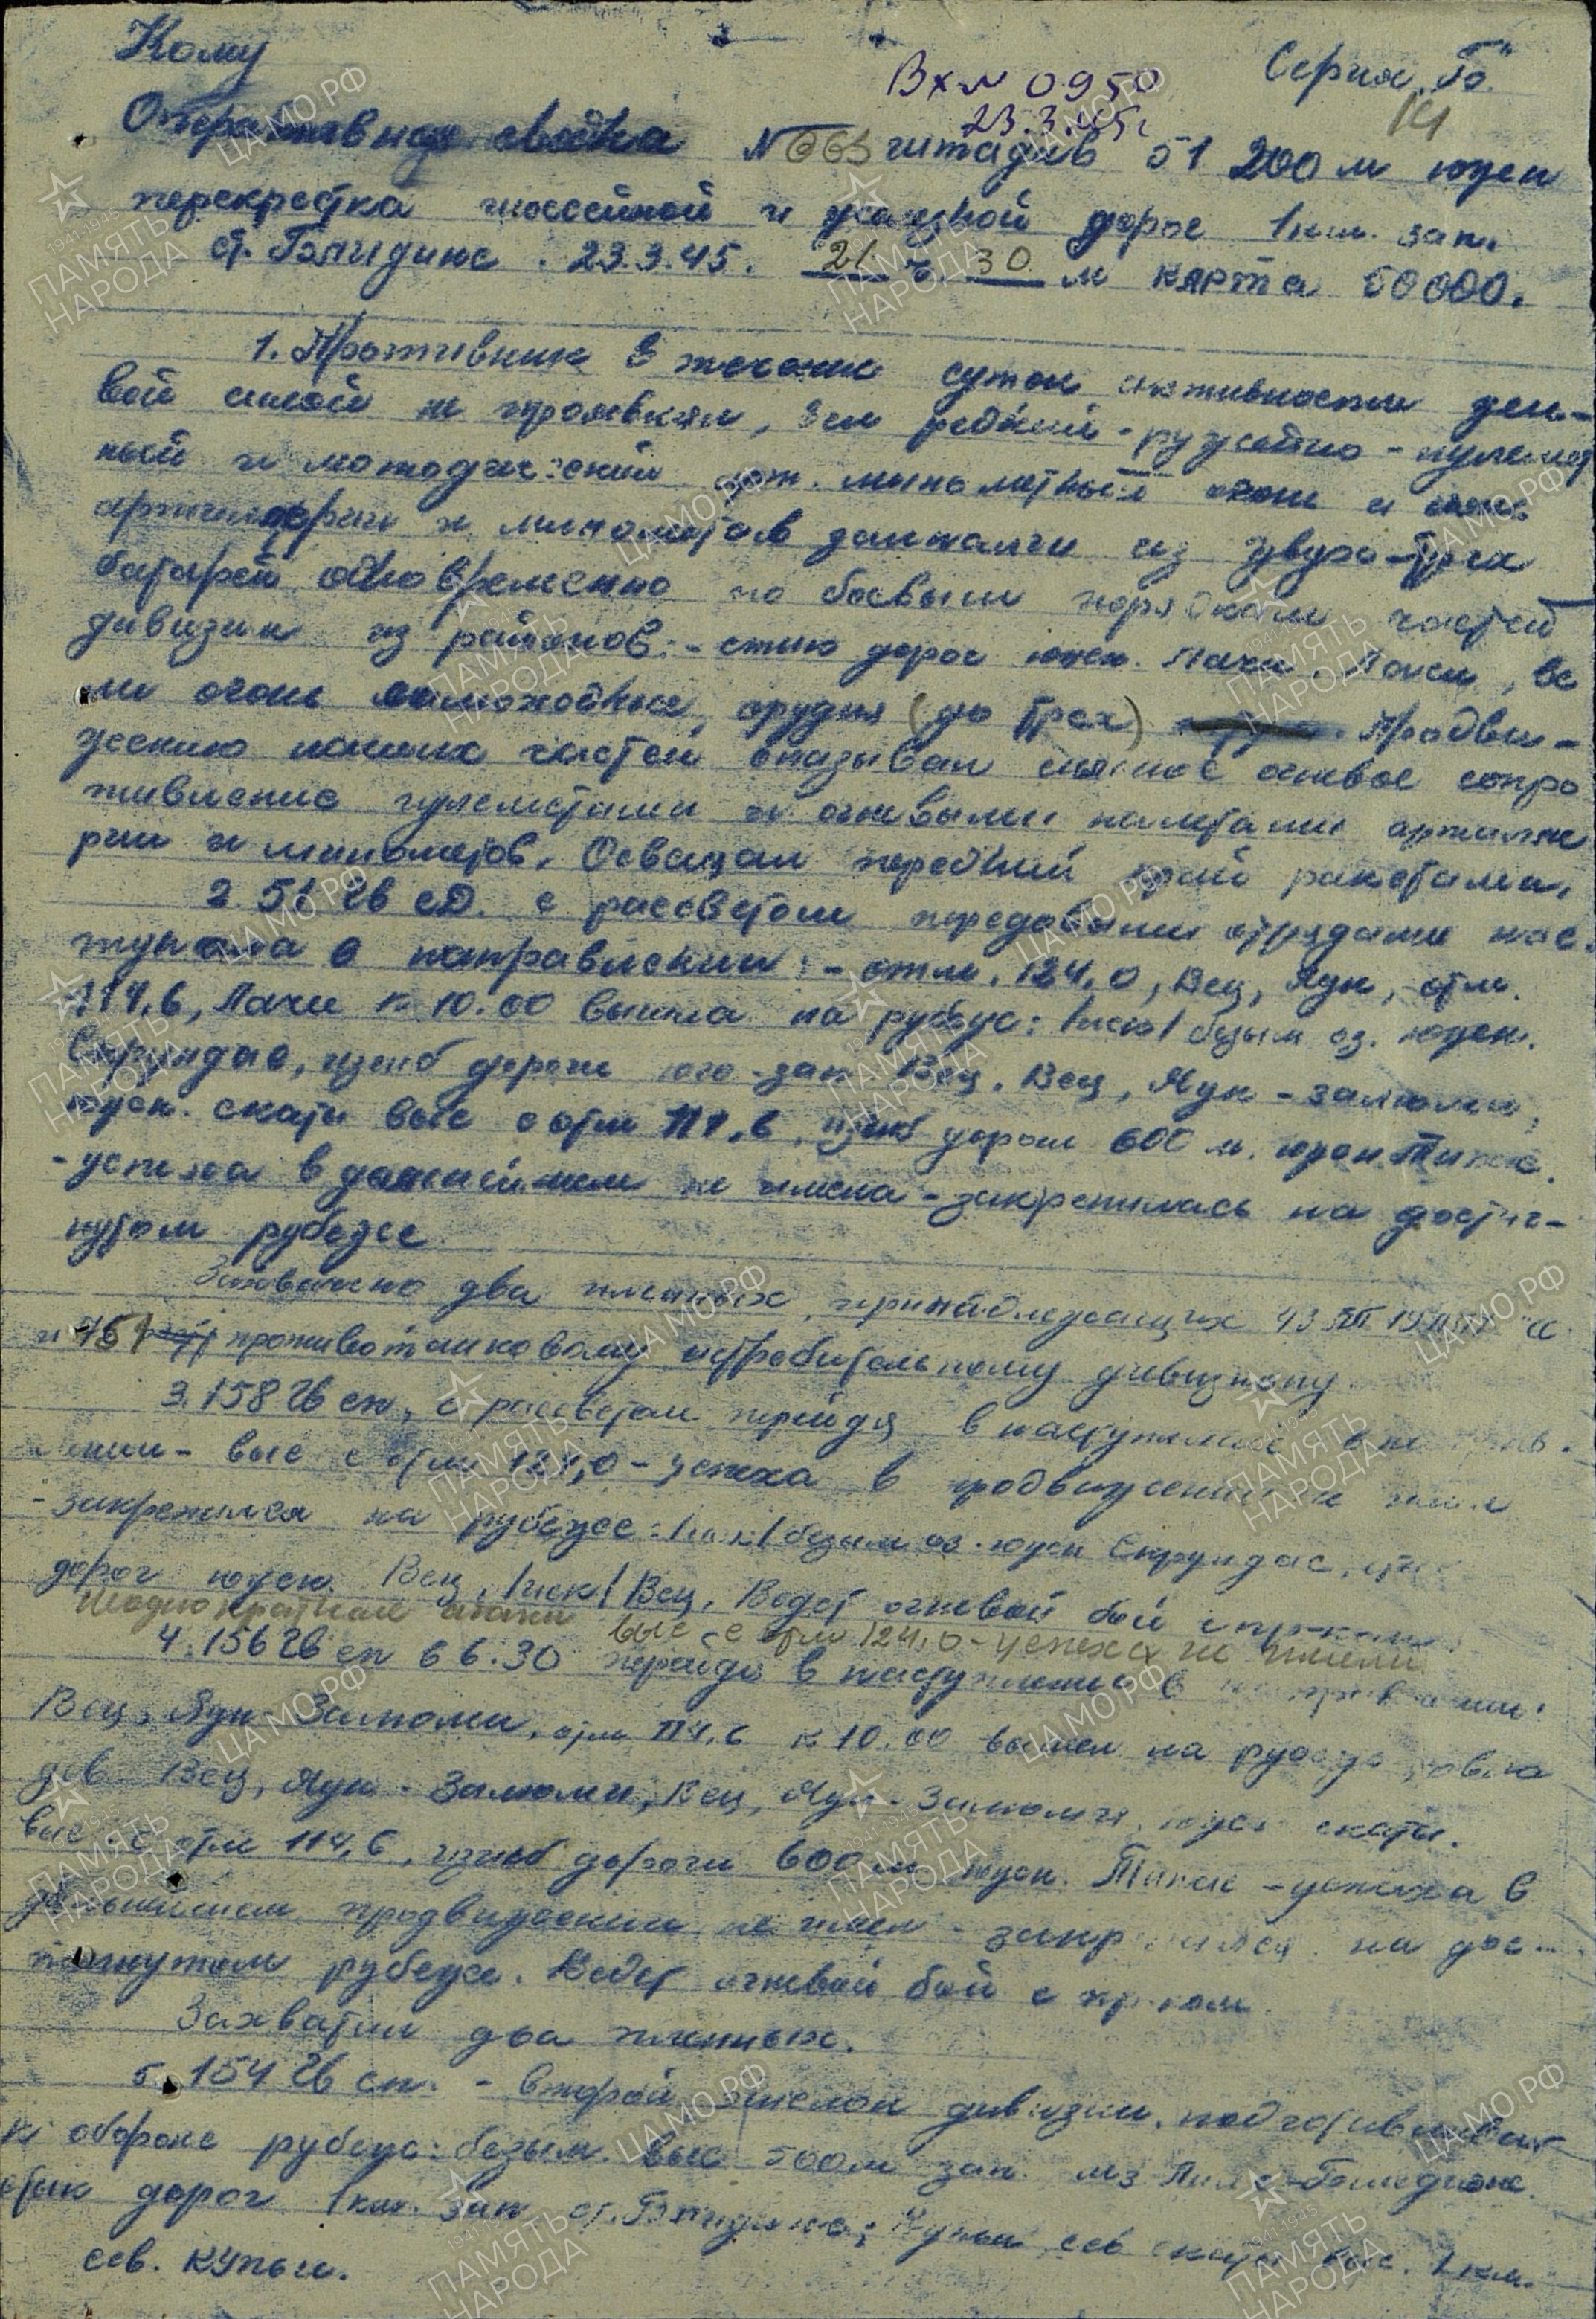 Кому
Серия "Б"
Вх № 0950
23.3.45г
14
Оперативная сводка № штадив 51 200 м южн
перекрестка шоссейной и железной дорог 1 км. зап.
ст. Блидине. 23.3.45. 21 ч. 30 м карта 50000.
1. Противник в течении суток активности жи-
вой силой не проявлял, вел редкий - ружейно - пулемет
ный и методический арт. минометный огонь и
артиллерии и минометов из двух-трех
батарей одновременно по боевым порядкам частей
дивизии из районов: - стык дорог южн. Лачи, Лачи, ве
ли огонь самоходные орудия (до трех) Продви-
жению наших частей оказывал сильное огневое сопро
тивление пулеметами и огневыми налетами артилле
рии и минометов. Освещал передний край ракетами.
2. 51 Гв сД. с рассветом передовыми отрядами нас
тупала в направлении: - отм. 124,0, Вец, Яун, отм.
114,6, Лачи к 10.00 вышла на рубеж: /иск/ безым оз. южн.
Скрундас, изгиб дороги юго-зап Вец. Вец, Яун - Залюми,
южн. скаты выс с отм 114,6, изгиб дороги 600 м. южн.
- успеха в дальнейшем не имела - закрепилась на достиг-
нутом рубеже.
Захвачено два пленных, принадлежащих 43 ПП 19 "СС"
и противотанковому истребительному дивизиону.
3. 158 Гв сп, с рассветом перейдя в наступление в
выс с отм 124,0 - успеха в продвижении не имел
- закрепился на рубеже: /иск/ безым оз. южн Скрундас,
дорог южн. Вец, /иск/ Вец. Ведет огневой бой с пр-ком.
Неоднократные атаки выс с отм 124,0 - успеха не имели
4. 156 Гв сп в 6.30 перейдя в наступление в направлении:
Вец, Яун Залюми, отм 114,6 к 10.00 вышел на рубеж, овла
дев Вец, Яун - Залюми, Вец, Яун - Залюми, южн скаты.
выс с отм 114,6, изгиб дороги 600 м южн. - успеха в
дальнейшем продвижении не имел - закрепился на дос-
тигнутом рубеже. Ведет огневой бой с пр-ком.
Захватил два пленных.
5. 154 Гв сп. - второй эшелон дивизии, подготавливает
к обороне рубеж: безым. выс 500 м зап. мз
стык дорог 1 км. зап ст. Блидине; Купьи, сев скаты выс. 1 км.
сев. Купьи.